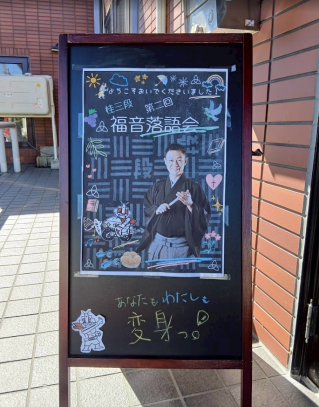 ようこそおいでくださいました!
桂三段 第二回
福音落語会
三段
あなたもわたしも
変身っ!